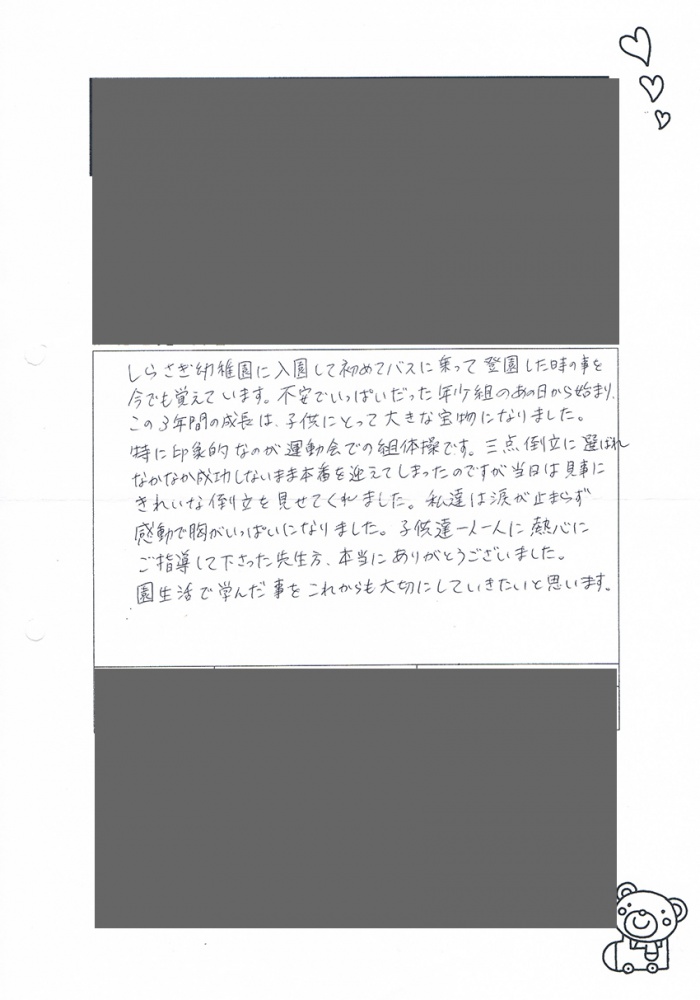 しらさぎ幼稚園に入園して初めてバスに乗って登園した時の事を
今でも覚えています。不安でいっぱいだった年少組のあの日から始まり、
この3年間の成長は、子供にとって大きな宝物になりました。
特に印象的なのが運動会での組体操です。三点倒立に選ばれ
なかなか成功しないまま本番を迎えてしまったのですが当日は見事に
きれいな倒立を見せてくれました。私達は涙が止まらず
感動で胸がいっぱいになりました。子供達一人一人に熱心に
ご指導して下さった先生方、本当にありがとうございました。
園生活で学んだ事をこれからも大切にしていきたいと思います。